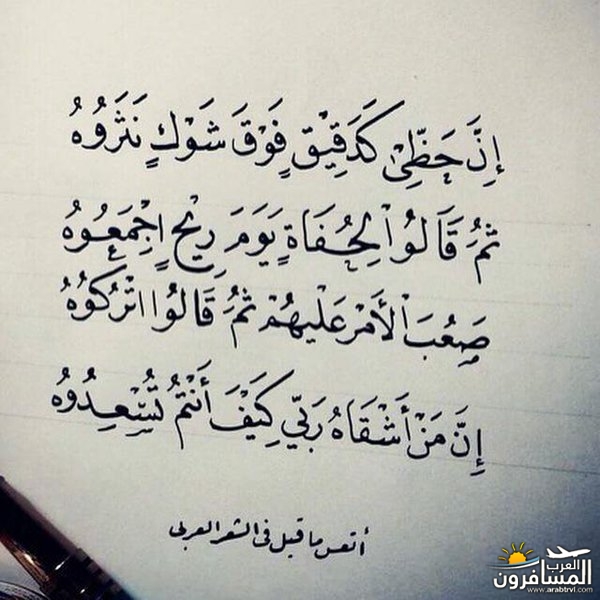 إِنَّ حَظِّيْ كَدَقِيْقٍ فَوْقَ شَوْكٍ نَثَرُوُهُ
ثمُ قَالُوُا لِحُفَاةٍ يَوَمَ رِيْحٍ اِجْمَعُوُهُ
صِعُبَ الْأَمْرَ عَلَيْهُمْ ثمُ قَالُوُا اتْرُكُوُهُ
إِنَّ مَنْ أَشْقَاهُ رَبّي كِيَفَ أَنْتمُ تُسْعِدُوُه
أتعس ما قيل في الشعر العربي
العرب
المسافرون
www.arabtrvl.com